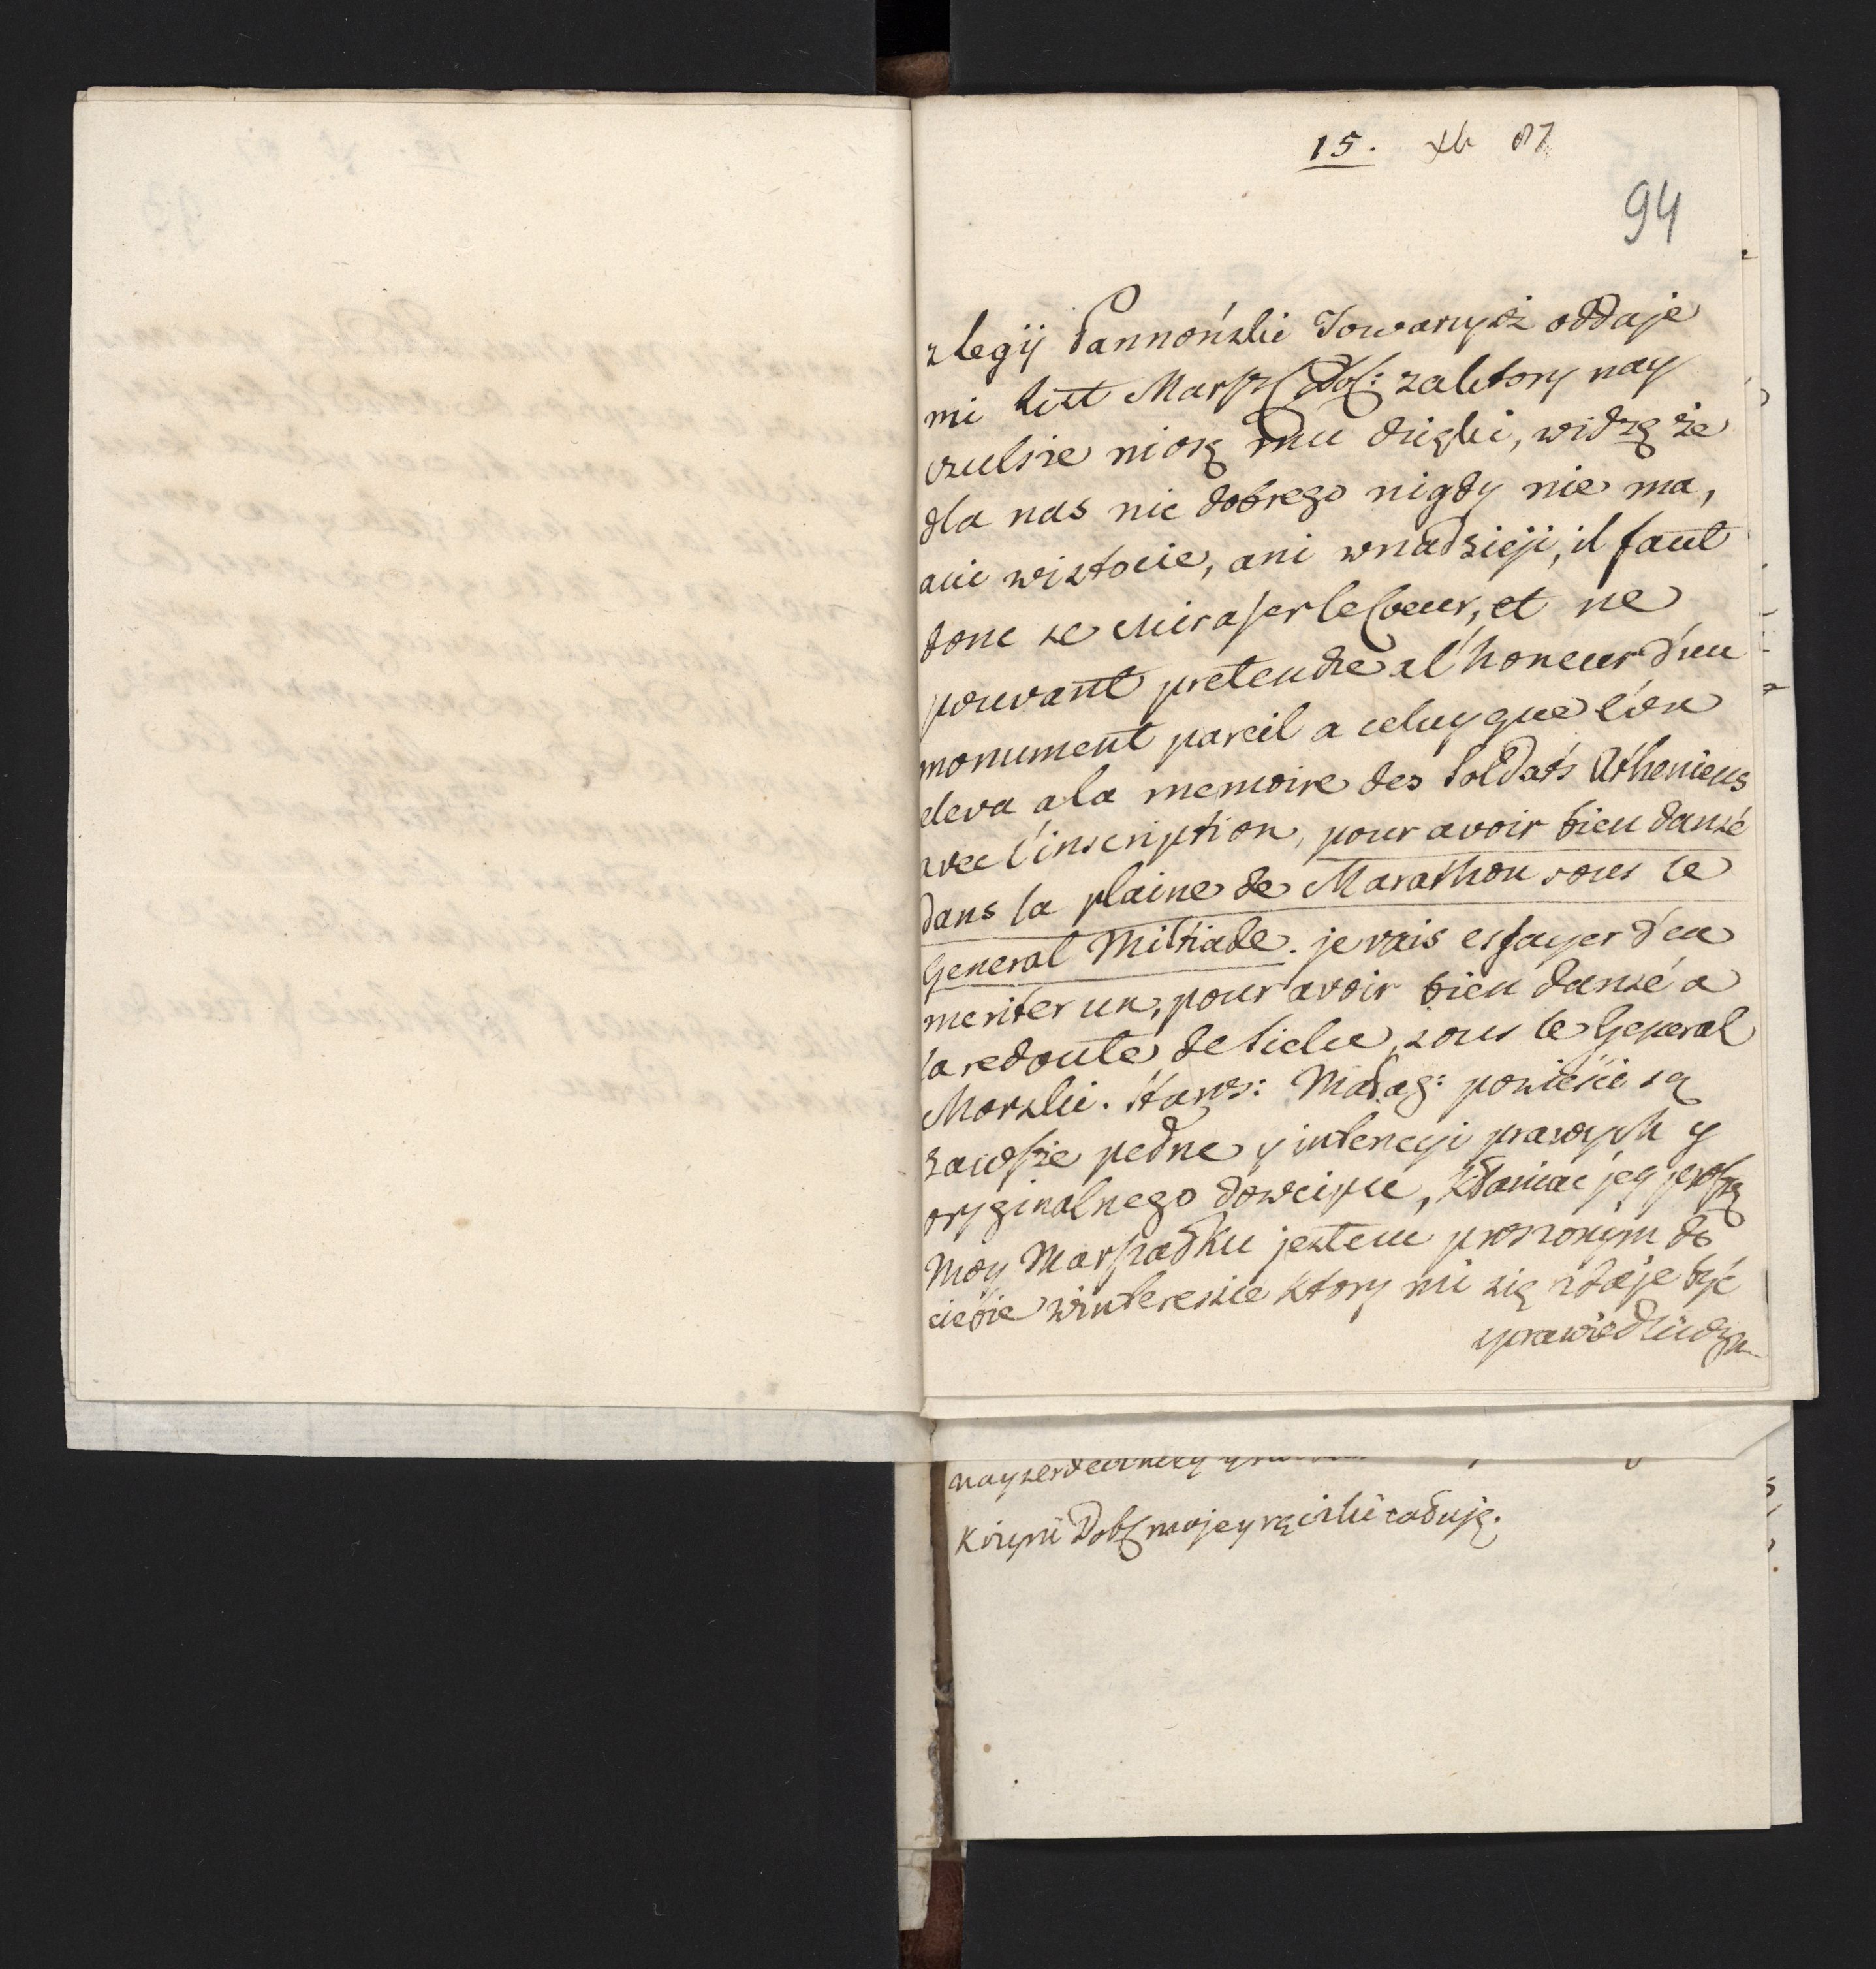 15. Xb 87
94
z legij Pannoński Towarzysz oddaje
mi list Marsz Dob: za ktory nay
czulsze niosę mu dzięki, widzę że
dla nas nic dobrego nigdy nie ma,
ani w istocie, ani w nadzieji, il faut
donc se cuirasser le Coeur, et ne
pouvant pretendre a l'honeur d'un
monument pareil a celuy que l'on
eleva a la memoire des Soldats Atheniens
avec l'inscription, pour avoir bien dansé
dans la plaine de Marathon sous le
General Miltiade. je vais essayer d'en
meriter un, pour avoir bien dansé a
la redoute de Sielce, sous le General
Morski. Staros: Małag: powieści są
zawsze pełne y intencyi prawych y
oryginalnego dowcipu, kłaniac jey proszę
Moy Marszałku jestem proszonym do
ciebie w interesie ktory mi się zdaje być
sprawiedliwym
nayserdeczniey
Xiężni Dob mojey rączki całuję.